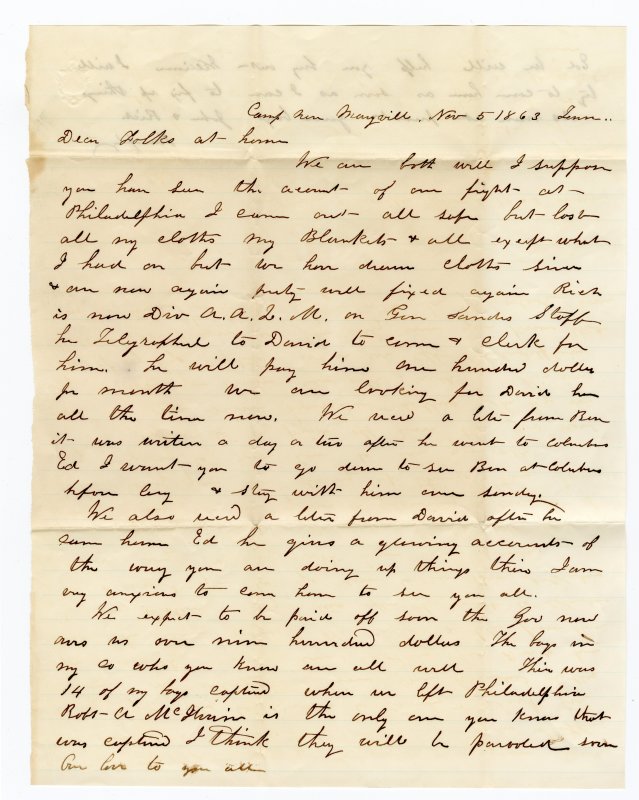 Camp near Maryvill. Nov 5 1863 Tenn..
Dear Folks at home
We are both well I suppose
you have seen the acount of our fight at
Philadelphia I came out all safe but lost
all my cloths my Blankets & all except what
I had on but we have drawn cloths since
& are now again prety well fixed again Rich
is now Div A.A.Q.M. on Gen Sanders Staff
he Telegraphed to David to come & clerk for
him. he will pay him one hundred dollars
per month We are looking for David here
all the time now. We recd a letr from Ben
it was writen a day or two after he went to Columbus
Ed I want you to go down to see Ben at Columbus
before long & stay with him over sunday.
We also recd a leter from David after he
came home Ed he gives a glowing accounts of
the way you are doing up things their I am
very anxious to come home to see you all.
We expect to be paid off soon the Gov now
owes us over nine hundred dollars The boys in
my Co who you know are all well Their was
14 of my boys captured when we left Philadelphia
Robt A McIlvain is the only one you know that
was captured I think they will be paroded soon
Our love to you all